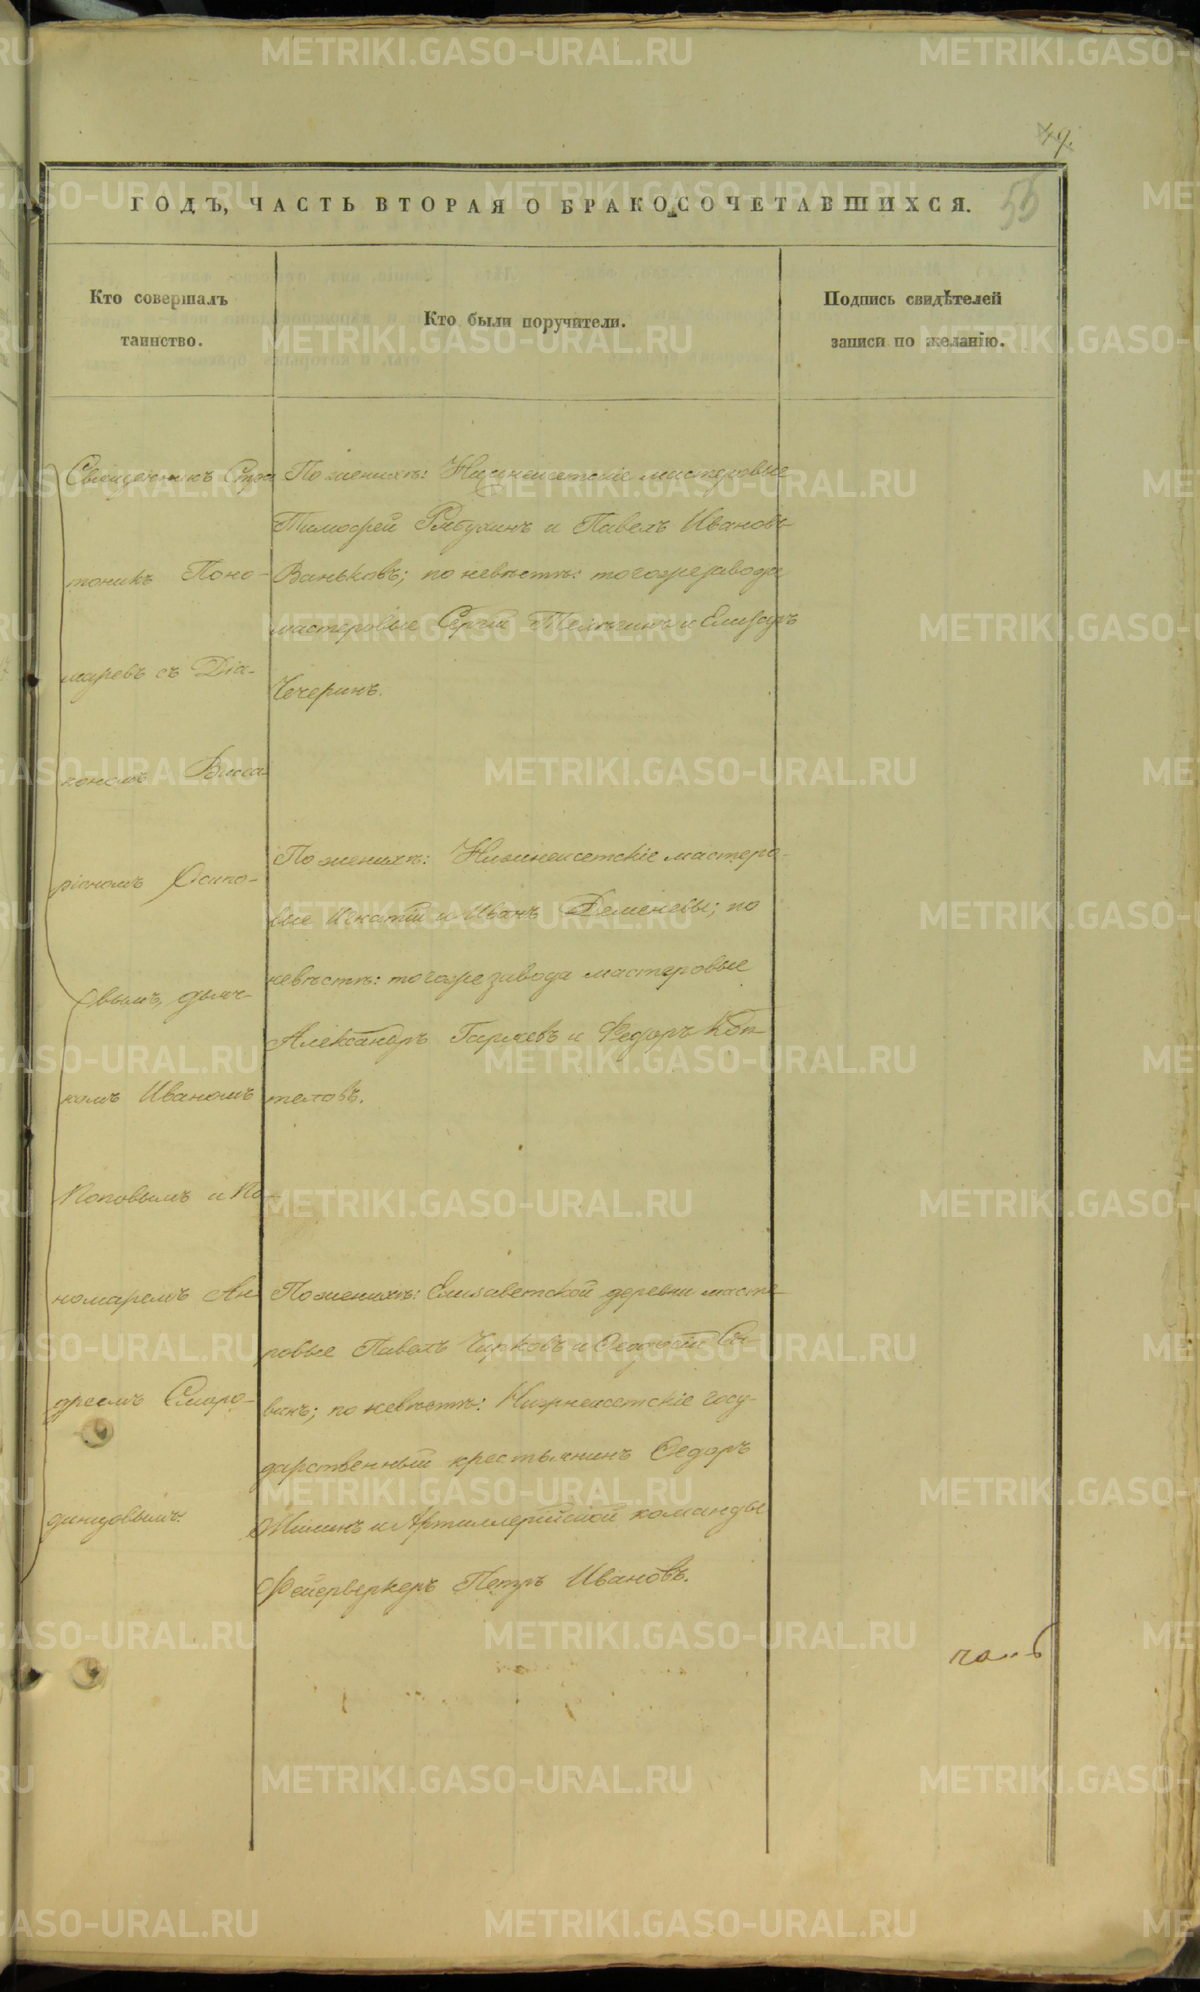 49.
55
ГОДЪ, ЧАСТЬ ВТОРАЯ О БРАКОСОЧЕТАВШИХСЯ.
Кто совершалъ
таинство.
Кто были поручители.
Подпись свидѣтелей
записи по желанію.
Священникъ Стра
тоникъ Поно-
маревъ съ Діа-
кономъ Висса
ріономъ Осипо-
вымъ, дьяч-
комъ Иваномъ
Поповымъ и По-
номаремъ Ан
дреемъ Смаро-
динцовымъ.
По женихѣ: Нижнеисетскіе мастеровые
Тимофей Рябухинъ и Павелъ Ивановъ
Ваньковъ; по невѣстѣ: тогоже завода
мастеровые Сергѣй и Елизаръ
Чечеринъ.
По женихѣ: Нижнеисетскіе мастеро-
вые Игнатій и Иванъ Деменевы; по
невѣстѣ: тогоже завода мастеровые
Александръ Гаряевъ и Федоръ Коп-
теловъ.
По женихѣ: Елизаветской деревни масте
ровые Павелъ Чирковъ и
по невѣстѣ: Нижнеисетскіе госу-
дарственный крестьянинъ Ѳедоръ
и Артиллерійской команды
Фейерверкеръ Петръ Ивановъ.
METRIKI.GASO-URAL.RU